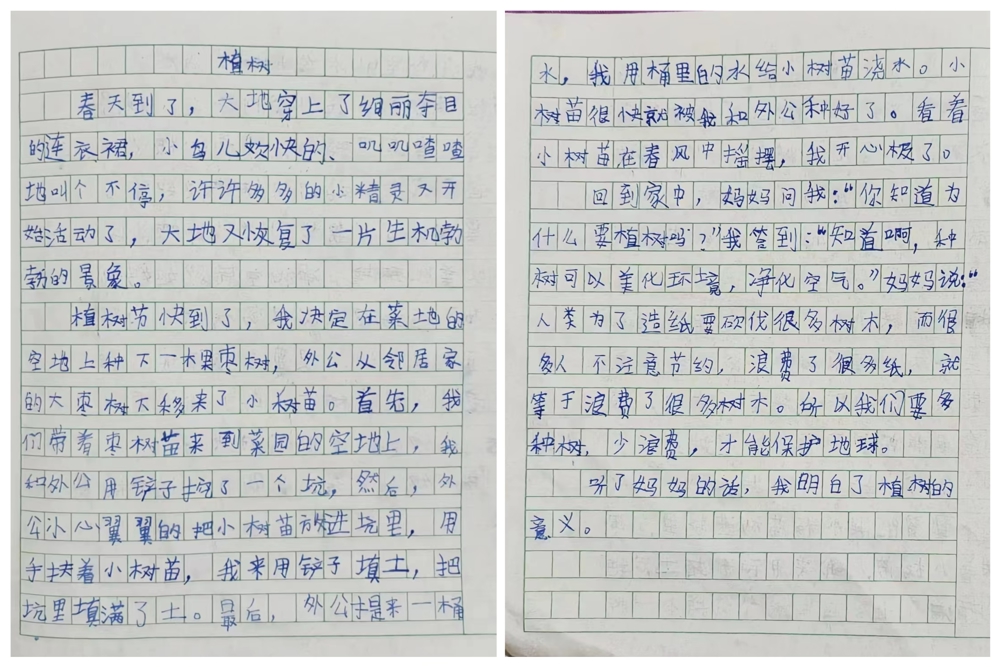 植树
春天到了，大地穿上了绚丽夺目
的连衣裙，小鸟儿欢快的、叽叽喳喳
地叫个不停，许许多多的小精灵又开
始活动了，大地又恢复了一片生机勃
勃的景象。
植树节快到了，我决定在菜地的
空地上种下一棵枣树，外公从邻居家
的大枣树下移来了小树苗。首先，我
们带着枣树苗来到菜园的空地上，我
和外公用铲子挖了一个坑，然后，外
公小心翼翼的把小树苗放进坑里，用
手扶着小树苗，我来用铲子填土，把
坑里填满了土。最后，外公提来一桶
水，我用桶里的水给小树苗浇水。小
树苗很快就被我和外公种好了。看着
小树苗在春风中摇摆，我开心极了。
回到家中，妈妈问我：“你知道为
什么要植树吗？”我答到：“知道啊，种
树可以美化环境，净化空气。”妈妈说：“
人类为了造纸要砍伐很多树木，而很
多人不注意节约，浪费了很多纸，就
等于浪费了很多树木。所以我们要多
种树，少浪费，才能保护地球。
听了妈妈的话，我明白了植树的
意义。